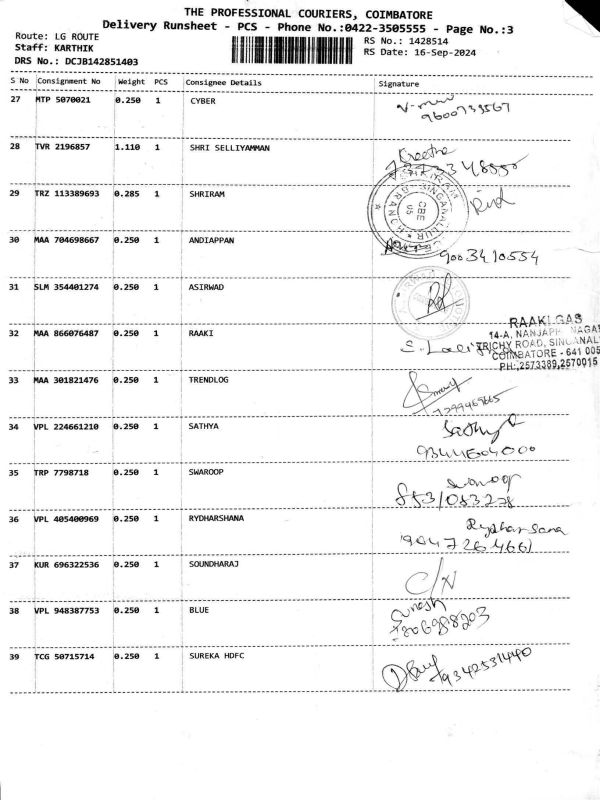 THE PROFESSIONAL COURIERS, COIMBATORE
Delivery Runsheet - PCS - Phone No.:0422-3505555 - Page No.:3
Route: LG ROUTE
Staff: KARTHIK
DRS No.: DCJB142851403
RS No.: 1428514
RS Date: 16-Sep-2024
S No Consignment No Weight PCS Consignee Details Signature
27 MTP 5070021 0.250 1 CYBER
28 TVR 2196857 1.110 1 SHRI SELLIYAMMAN
29 TRZ 113389693 0.285 1 SHRIRAM
30 MAA 704698667 0.250 1 ANDIAPPAN 9003410554
31 SLM 354401274 0.250 1 ASIRWAD
32 MAA 866076487 0.250 1 RAAKI
RAAKI GAS
14-A, NANJAPPA NAGA
TRICHY ROAD, SINGANAL
COIMBATORE - 641 005
PH:,2573389,2570015
33 MAA 301821476 0.250 1 TRENDLOG
34 VPL 224661210 0.250 1 SATHYA Sathya
35 TRP 7798718 0.250 1 SWAROOP Swaroop
36 VPL 405400969 0.250 1 RYDHARSHANA Rydharsana
37 KUR 696322536 0.250 1 SOUNDHARAJ C/N
38 VPL 948387753 0.250 1 BLUE
39 TCG 50715714 0.250 1 SUREKA HDFC 9342531440